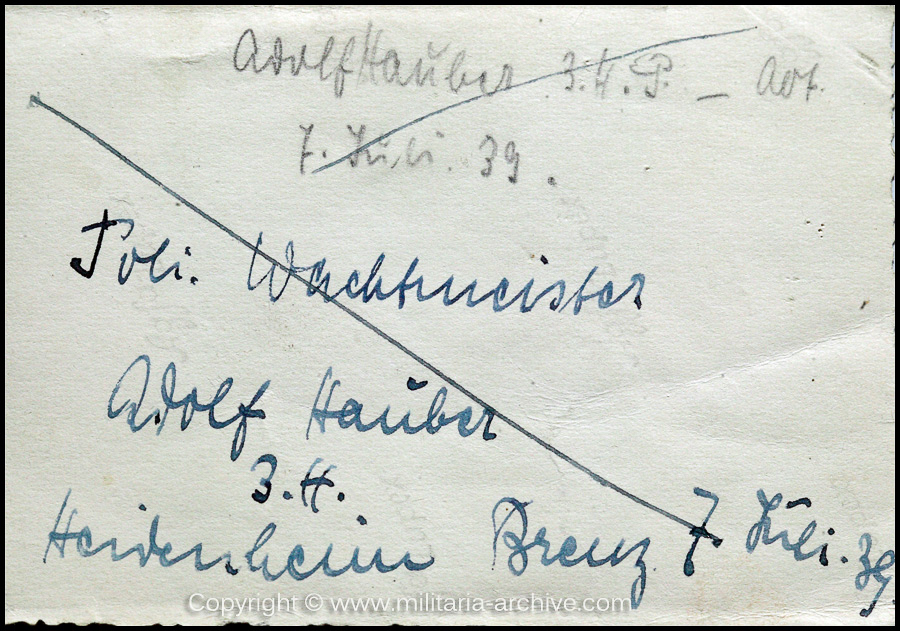 Adolf Hauber 3.H.P. – Abt.
7. Juli. 39.
Poli. Wachtmeister
Adolf Hauber
3.H.
Heidenheim Brenz 7. Juli. 39
Copyright © www.militaria-archive.com